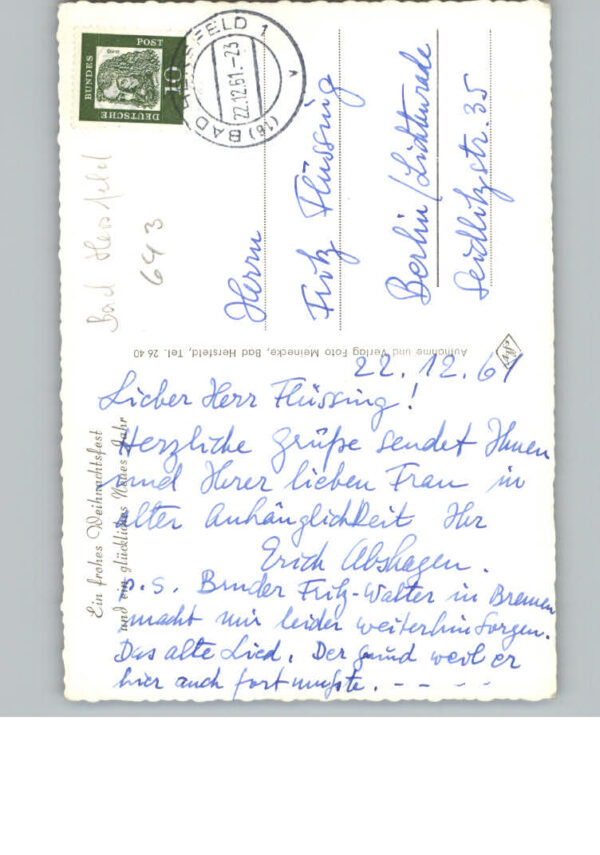 DEUTSCHE
BUNDES
POST
10
(16) BAD HERSFELD 1
22.12.61.-23
v
Bad Hersfeld
643
Herrn
Fritz Flüssing
Berlin/Lichtenrade
Seidlitzstr. 35
Aufnahme und Verlag Foto Meinecke, Bad Hersfeld, Tel. 26 40
Ein frohes Weihnachtsfest
und ein glückliches Neues Jahr
22.12.61
Lieber Herr Flüssing!
Herzliche Grüße sendet Ihnen
und Ihrer lieben Frau in
alter Anhänglichkeit Ihr
Erich Abshagen.
P.S. Bruder Fritz-Walter in Bremen
macht mir leider weiterhin Sorgen.
Das alte Lied. Der Grund weil er
hier auch fort mußte. - - - -